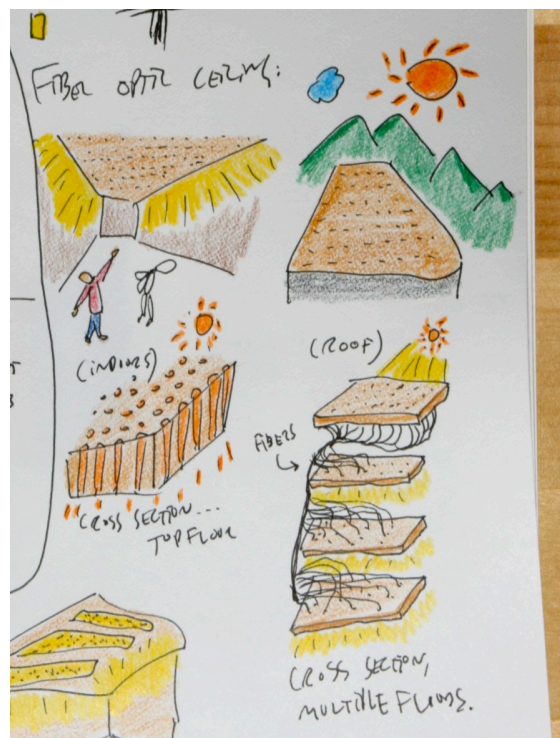 FIBER OPTIC CEILING:
(INDOORS)
(ROOF)
FIBERS
CROSS SECTION...
TOP FLOOR
CROSS SECTION,
MULTIPLE FLOORS.